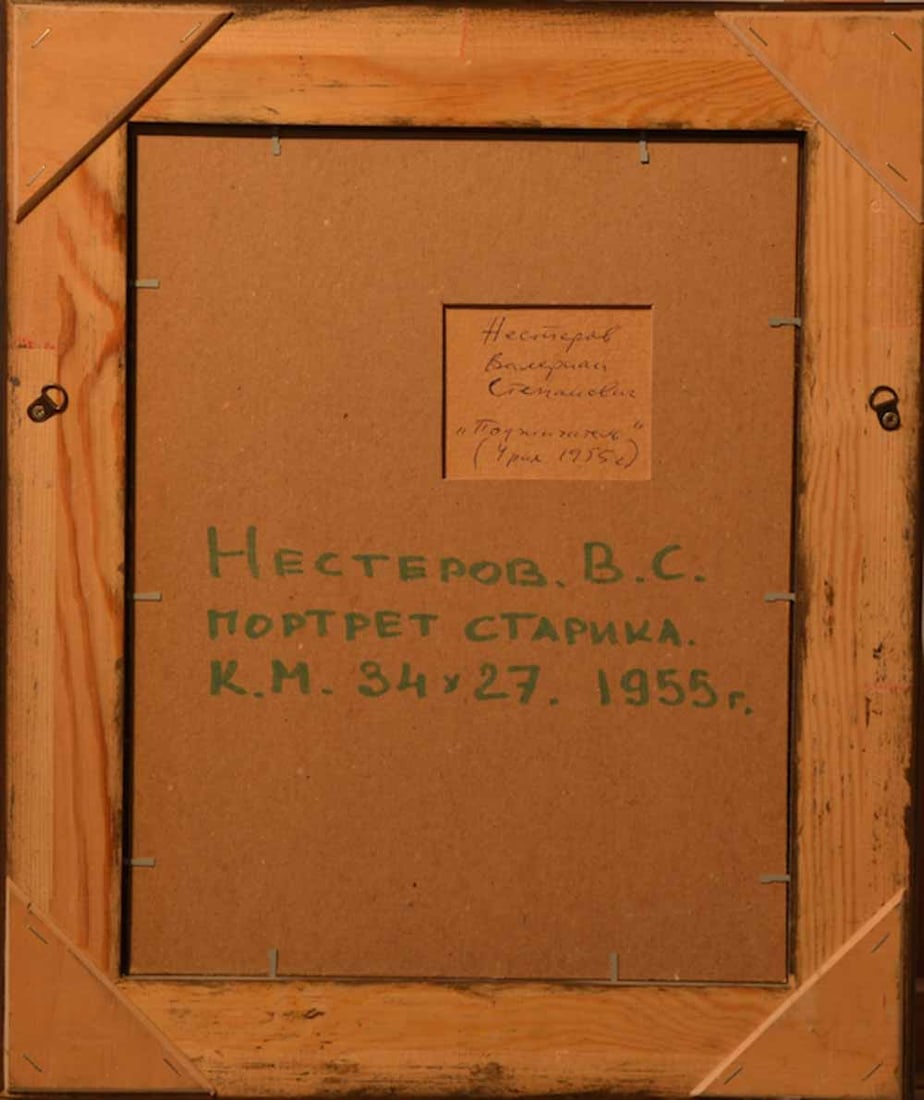 Нестеров
Валериан
Степанович
„Поджигатель"
( 1955 г)
НЕСТЕРОВ. В.С.
ПОРТРЕТ СТАРИКА.
К.М. 34х27. 1955г.